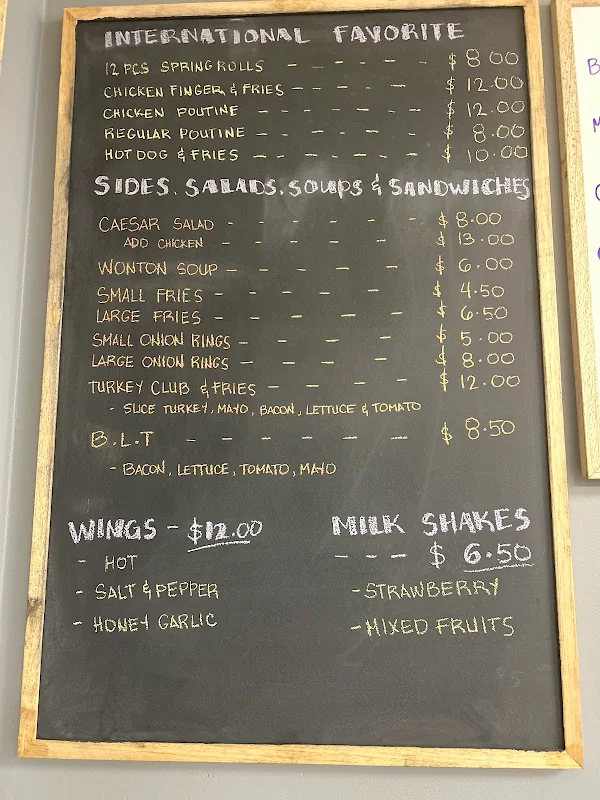 INTERNATIONAL FAVORITE
12 PCS SPRING ROLLS - - - - - $ 8.00
CHICKEN FINGER & FRIES - - - - - $ 12.00
CHICKEN POUTINE - - - - - $ 12.00
REGULAR POUTINE - - - - - $ 8.00
HOT DOG & FRIES - - - - - - $ 10.00
SIDES, SALADS, SOUPS & SANDWICHES
CAESAR SALAD - - - - - - $ 8.00
ADD CHICKEN - - - - - - $ 13.00
WONTON SOUP - - - - - - $ 6.00
SMALL FRIES - - - - - $ 4.50
LARGE FRIES - - - - - $ 6.50
SMALL ONION RINGS - - - - - $ 5.00
LARGE ONION RINGS - - - - - $ 8.00
TURKEY CLUB & FRIES - - - - - $ 12.00
- SLICE TURKEY, MAYO, BACON, LETTUCE & TOMATO
B.L.T - - - - - - - $ 8.50
- BACON, LETTUCE, TOMATO, MAYO
WINGS - $12.00
- HOT
- SALT & PEPPER
- HONEY GARLIC
MILK SHAKES
- - - $ 6.50
- STRAWBERRY
- MIXED FRUITS
B